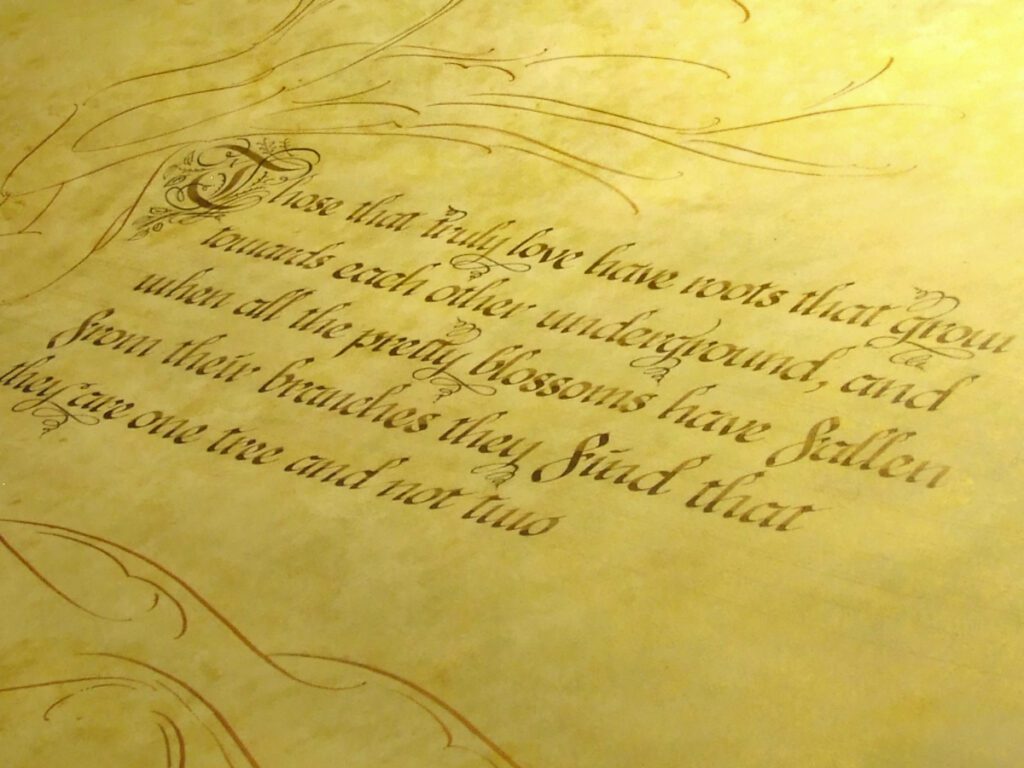 Those that truly love have roots that grow
towards each other underground, and
when all the pretty blossoms have fallen
from their branches they find that
they are one tree and not two